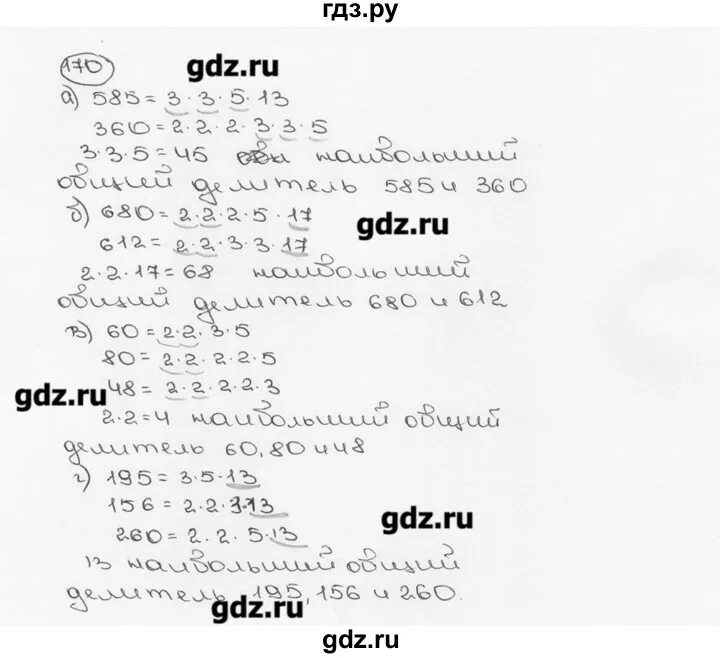 гдз.ру
gdz.ru
170
а) 585 = 3·3·5·13
360 = 2·2·2·3·3·5
3·3·5=45 наибольший
общий делитель 585 и 360
б) 680 = 2·2·2·5·17
gdz.ru
612 = 2·2·3·3·17
2·2·17=68 наибольший
общий делитель 680 и 612
в) 60 = 2·2·3·5
80 = 2·2·2·2·5
gdz.ru
48 = 2·2·2·2·3
2·2=4 наибольший общий
делитель 60, 80 и 48
г) 195 = 3·5·13
156 = 2·2·3·13
gdz.ru
260 = 2·2·5·13
13 наибольший общий
делитель 195, 156 и 260.
gdz.ru
gdz.ru